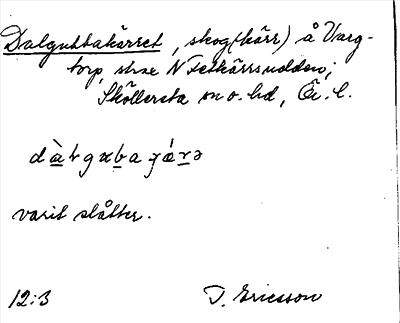 Dalguttakärret, skog(kärr) å Varg-
torp, strax N Fetkärrsudden;
Sköllersta sn o. hd, Ör. l.
varit slåtter.
12:3 T. Ericsson